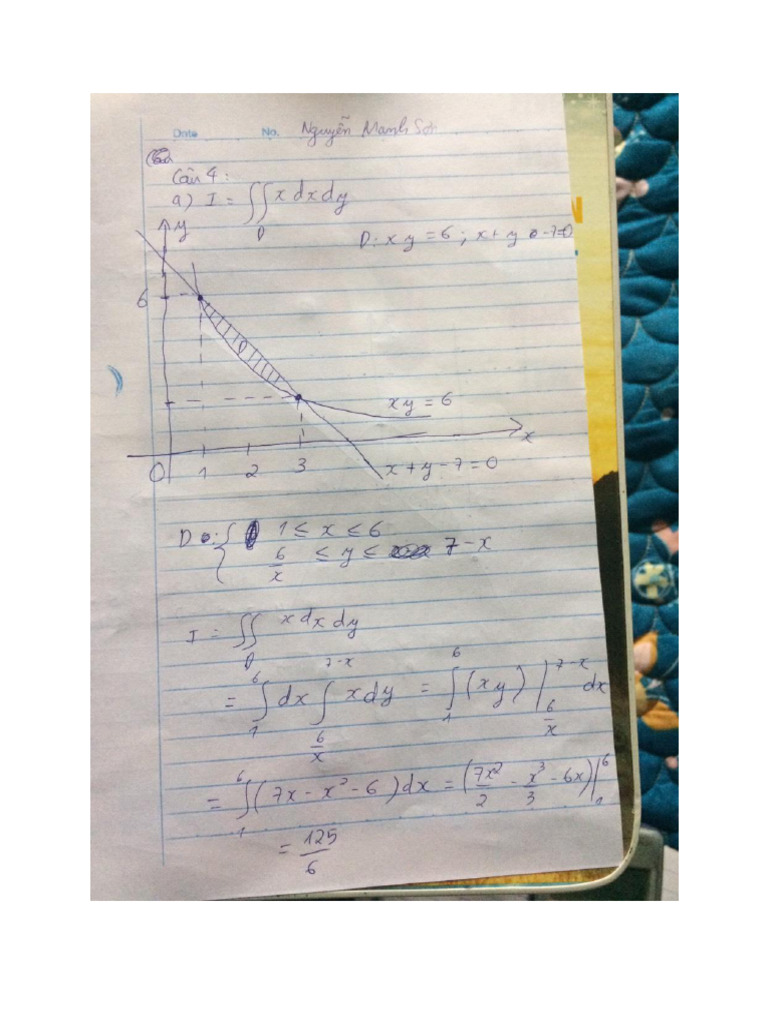 Date No. Nguyễn Mạnh Sơn
Câu 4:
a) I = ∬_D x dx dy
D: xy = 6 ; x + y - 7 = 0
y
6
D
xy = 6
x
O 1 2 3
x + y - 7 = 0
D : { 1 ≤ x ≤ 6
6/x ≤ y ≤ 7 - x
I = ∬_D x dx dy
= ∫_1^6 dx ∫_{6/x}^{7-x} x dy = ∫_1^6 (xy) |_{6/x}^{7-x} dx
= ∫_1^6 (7x - x² - 6) dx = (7x²/2 - x³/3 - 6x) |_1^6
= 125/6